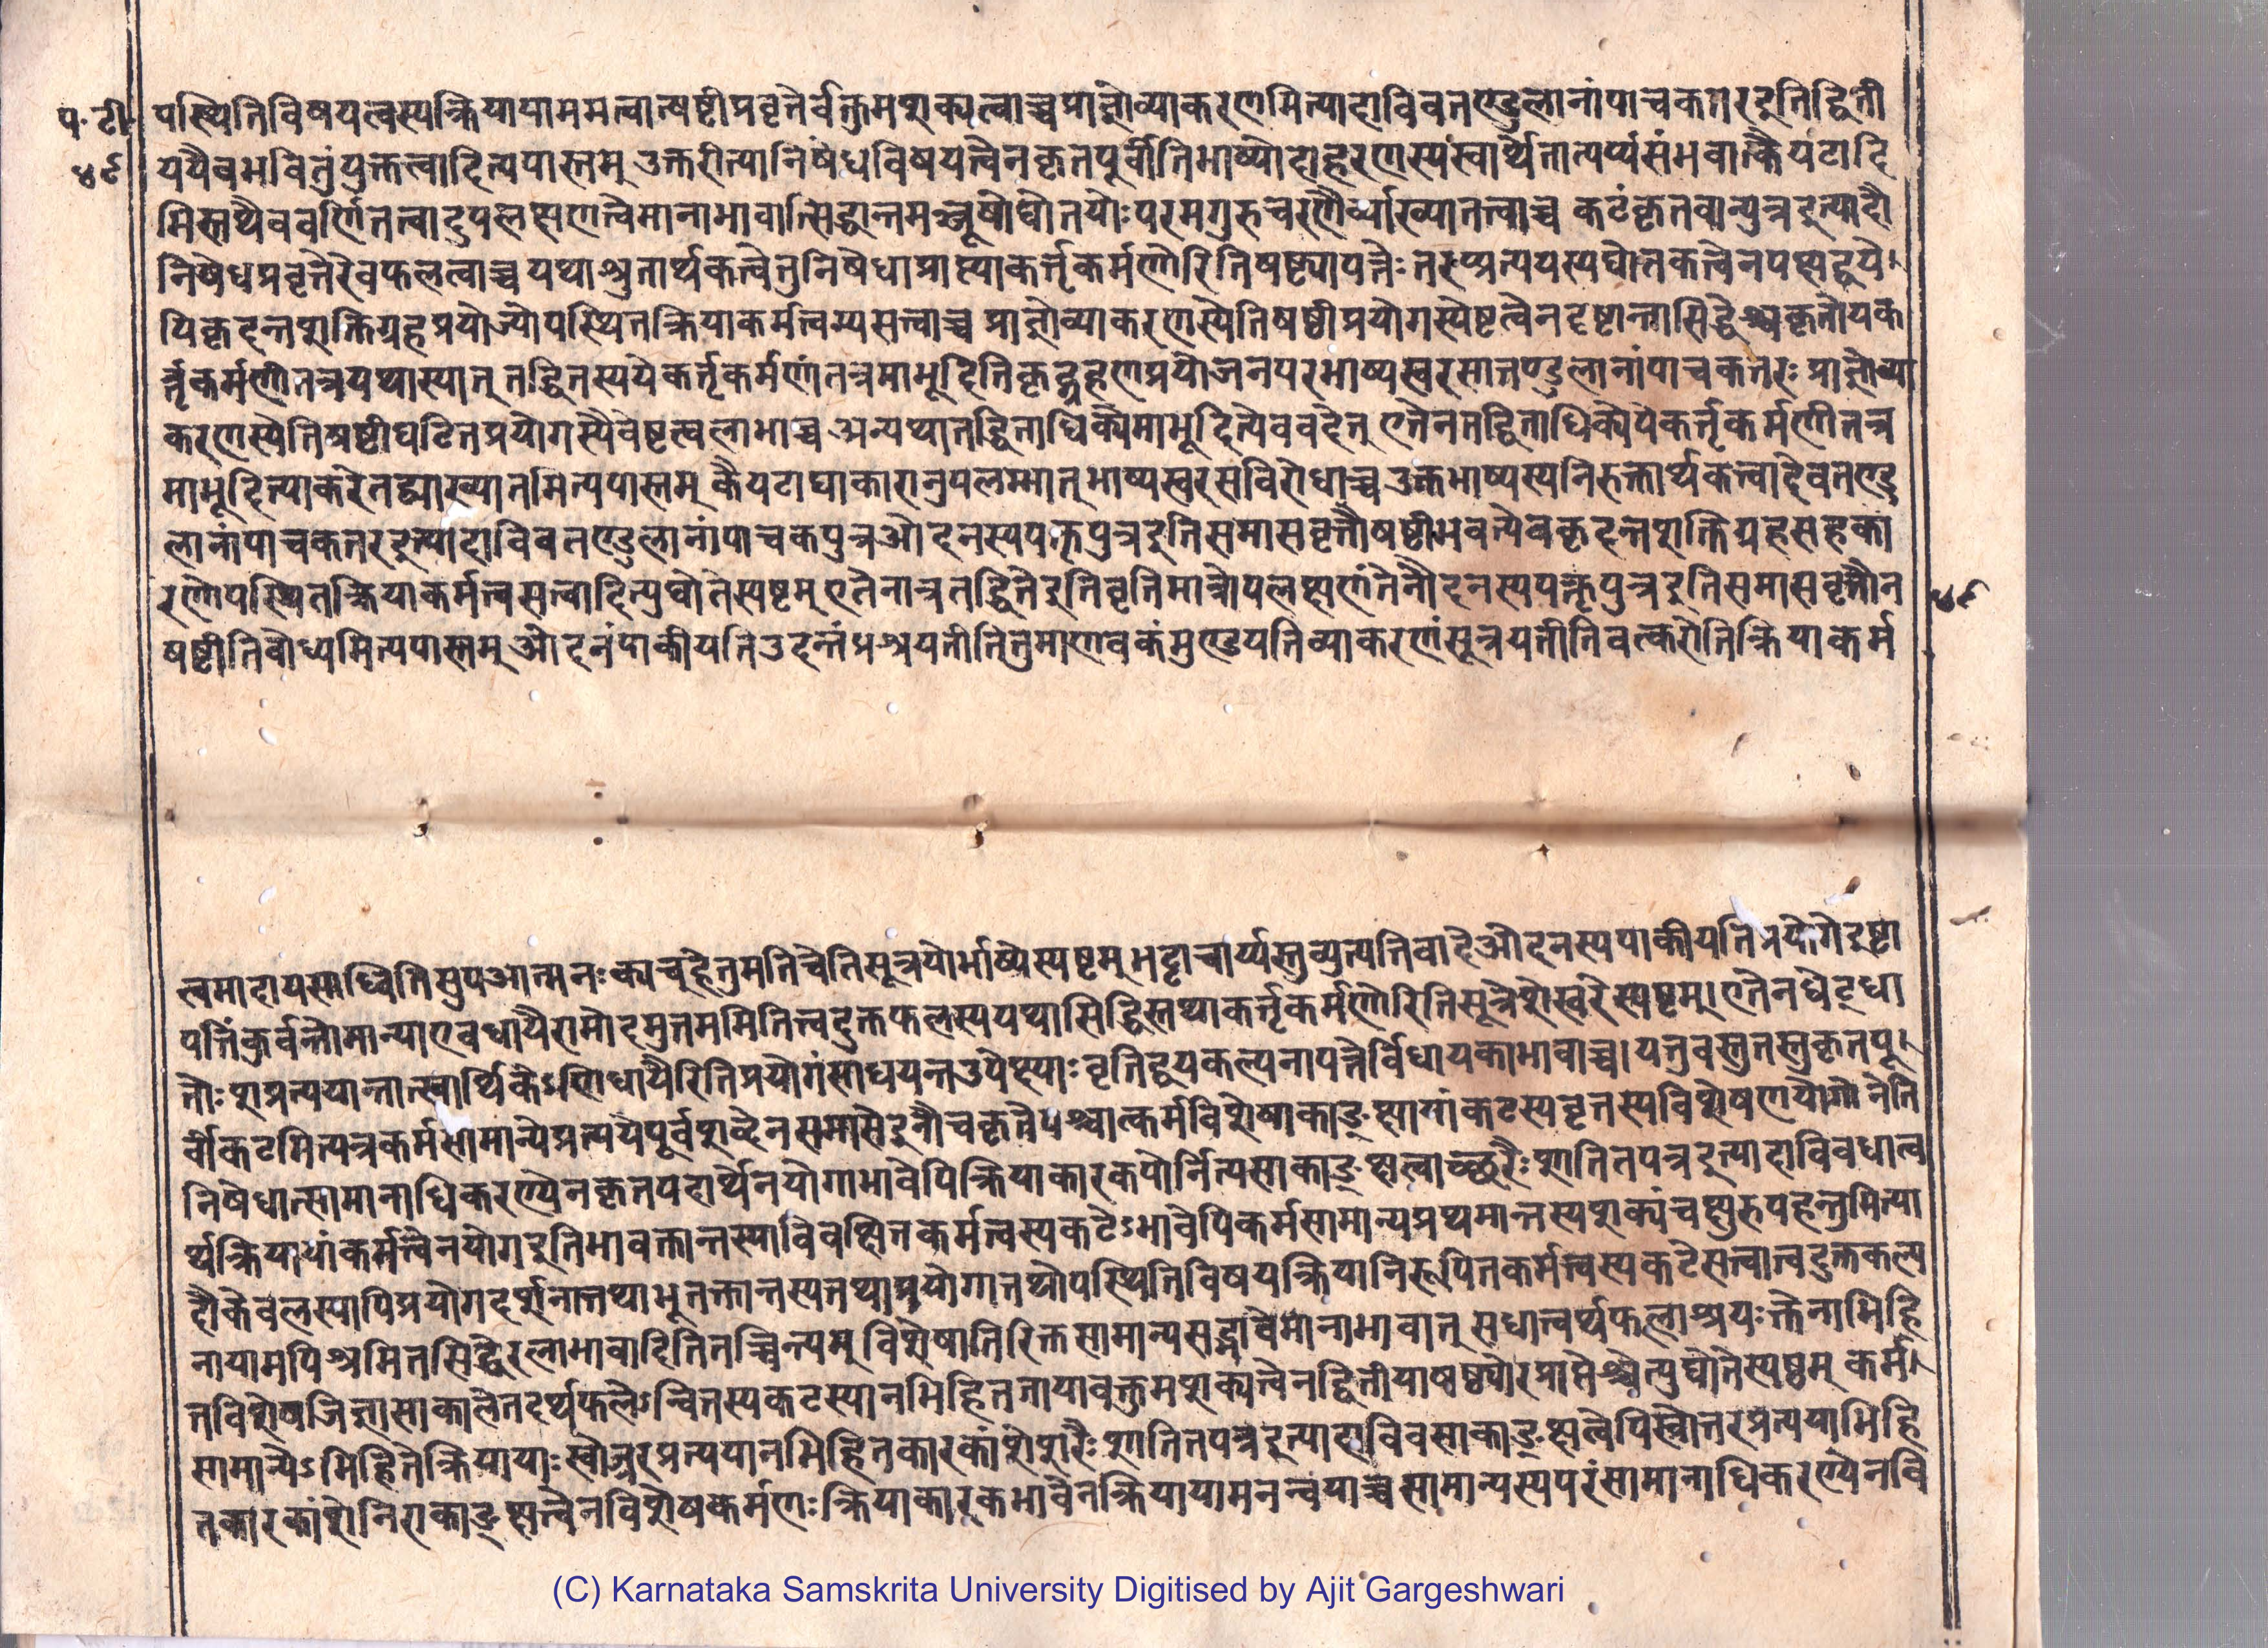 प॰ टी॰
४९
पस्थितिविषयत्वस्यक्रियायामसत्वात्षष्टीप्रवृत्तेर्वक्तुमशक्यत्वाच्चप्राज्ञोव्याकरणमित्यादाविवतण्डुलानांपाचकतरइतिद्विती
ययैवभवितुंयुक्तत्वादित्यपास्तम् उक्तरीत्यानिषेधविषयत्वेनकृतपूर्वीतिभाष्योदाहरणस्यस्वार्थेतात्पर्य्यसंभवात्कैयटादि
भिस्तथैववर्णितत्वादुपलक्षणत्वेमानाभावात्सिद्धान्तमञ्जूषोद्योतयोःपरमगुरुचरणैर्व्याख्यातत्वाच्च कटंकृतवान्पुत्रइत्यादौ
निषेधप्रवृत्तेरेवफलत्वाच्च यथाश्रुतार्थकत्वेतुनिषेधाप्राप्त्याकर्त्तृकर्मणोरितिषष्ठ्यापत्तेः तरप्प्रत्ययस्यद्योतकत्वेनपक्षद्वये।
पिकृदन्तशक्तिग्रहप्रयोज्योपस्थितक्रियाकर्मत्वस्यसत्त्वाच्च प्राज्ञोव्याकरणस्येतिषष्ठीप्रयोगस्येष्टत्वेनदृष्टान्तासिद्धेश्चकृतोयेक
र्त्तृकर्मणीतत्रयथास्यात् तद्धितस्ययेकर्त्तृकर्मणांतत्रमाभूदितिकृद्ग्रहणप्रयोजनपरभाष्यस्वरसात्तण्डुलानांपाचकतरः प्राज्ञोव्या
करणस्येतिषष्टीघटितप्रयोगस्यैवेष्टत्वलाभाच्च अन्यथातद्धिताधिक्येमाभूदित्येववदेत् एतेनतद्धिताधिक्येयेकर्त्तृकर्मणीतत्र
माभूदित्याकरेतद्व्याख्यातमित्यपास्तम् कैयटाद्याकारानुपलम्भात् भाष्यस्वरसविरोधाच्च उक्तभाष्यस्यनिरुक्तार्थकत्वादेवतण्डु
लानांपाचकतरइत्यादाविवतण्डुलानांपाचकपुत्रओदनस्यपक्तृपुत्रइतिसमासवृत्तौषष्ठीभवत्येवकृदन्तशक्तिग्रहसहका
रणोपस्थितक्रियाकर्मत्वसत्वादित्युद्योतेस्पष्टम् एतेनात्रतद्धितेइतिवृत्तिमात्रोपलक्षणंतेनौदनस्यपक्तृपुत्रइतिसमासवृत्तौन
४९
षष्टीतिबोध्यमित्यपास्तम् ओदनंपाकीयतिउदन्तंप्रश्रयतीतितुमाणवकंमुण्डयतिव्याकरणंसूत्रयतीतिवत्करोतिक्रियाकर्म
त्वमादायसाध्वितिसुपआत्मनःक्यच्हेतुमतिचेतिसूत्रयोर्भाष्येस्पष्टम् भट्टाचार्य्यस्तुव्युत्पत्तिवादेओदनस्यपाकीयतिप्रयोगेइष्टा
पत्तिंकुर्वन्तोमान्याएवधायैरामोदमुत्तममितित्वदुक्तफलस्ययथासिद्धिस्तथाकर्त्तृकर्मणोरितिसूत्रेशेखरेस्पष्टम्। एतेनधेट्धा
तोःशप्रत्ययान्तात्स्वार्थिकेऽणिधायैरितिप्रयोगंसाधयन्तउपेक्ष्याः वृत्तिद्वयकल्पनापत्तेर्विधायकाभावाच्च। यत्तुवस्तुतस्तुकृतपू।
र्वीकटमित्यत्रकर्मसामान्येप्रत्ययेपूर्वशब्देनसमासेइनौचकृतेपश्चात्कर्मविशेषाकाङ्क्षायांकटस्यवृत्तस्यविशेषणयोगोनेति
निषेधात्सामानाधिकरण्येनकृतपदार्थेनयोगाभावेपिक्रियाकारकयोर्नित्यसाकाङ्क्षत्वाच्छरैःशातितपत्रइत्यादाविवधात्व
र्थक्रियायांकर्मत्वेनयोगइतिभावक्तान्तस्याविवक्षितकर्मत्वस्यकटेऽभावेपिकर्मसामान्यप्रथमान्तस्यशक्यंचक्षुरुपहन्तुमित्या
दौकेवलस्यापिप्रयोगदर्शनात्तथाभूतक्तान्तस्यतथाप्रयोगात्तथोपस्थितिविषयक्रियानिरूपितकर्मत्वस्यकटेसत्वात्वदुक्तकल्प
नायामपिश्रमितसिद्धेरलाभावादितितच्चिन्त्यम् विशेषातिरिक्तसामान्यसद्भावेमानाभावात् सधात्वर्थफलाश्रयःक्तेनाभिहि
तविशेषजिज्ञासाकालेतदर्थफलेऽन्वितस्यकटस्यानभिहिततायावक्तुमशक्यत्वेनद्वितीयाषष्ठ्योरप्राप्तेश्चेत्युद्योतेस्पष्टम् कर्म।
सामान्येऽभिहितेक्रियायाःस्वोत्तरप्रत्ययानभिहितकारकांशेशरैःशातितपत्रइत्यादाविवसाकाङ्क्षत्वेपिस्वोत्तरप्रत्ययाभिहि
तकारकांशेनिराकाङ्क्षत्वेनविशेषकर्मणःक्रियाकारकभावेनक्रियायामनन्वयाच्च सामान्यस्यपरंसामानाधिकरण्येनवि
(C) Karnataka Samskrita University Digitised by Ajit Gargeshwari